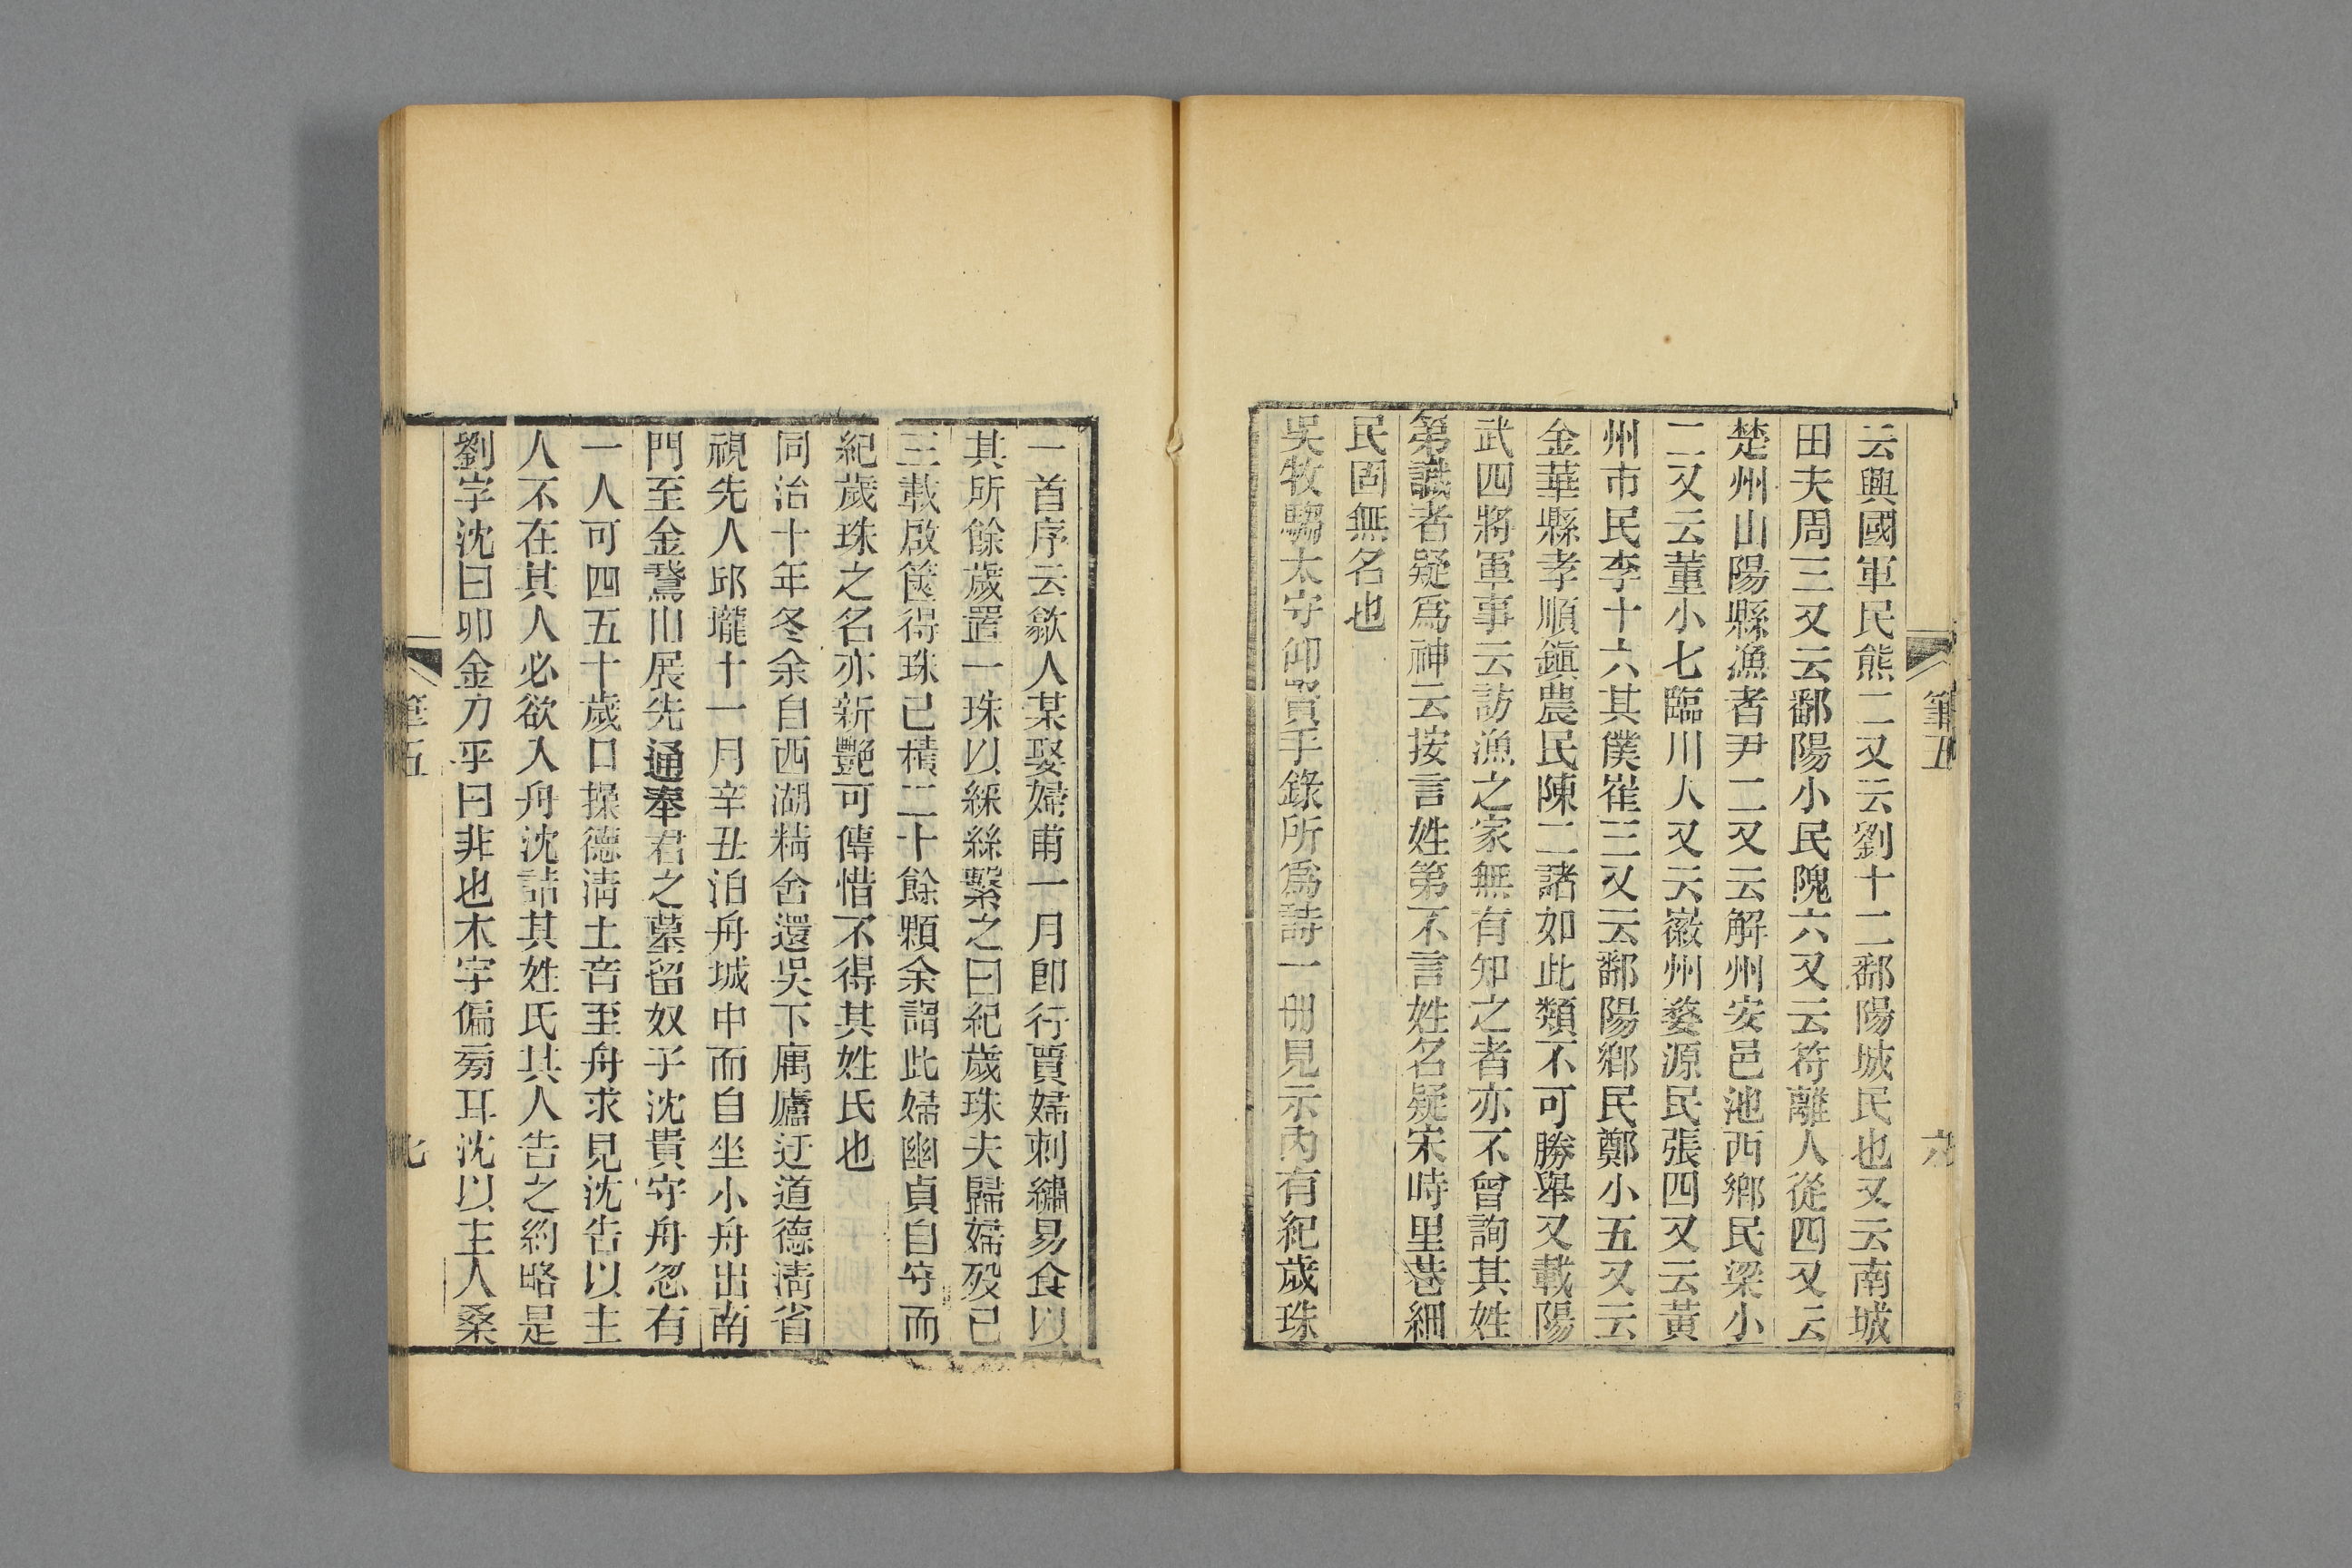 云興國軍民熊二又云劉十二鄱陽城民也又云南城
田夫周三又云鄱陽小民隗六又云符離人從四又云
楚州山陽縣漁者尹二又云解州安邑池西鄉民梁小
二又云董小七臨川人又云徽州婺源民張四又云黃
州市民李十六其僕崔三又云鄱陽鄉民鄭小五又云
金華縣孝順鎮農民陳二諸如此類不可勝舉又載陽
武四將軍事云訪漁之家無有知之者亦不曾詢其姓
第識者疑爲神云按言姓第不言姓名疑宋時里巷細
民固無名也
吳牧騶太守仰賢手錄所爲詩一册見示內有紀歲珠
筆五
六
一首序云歙人某娶婦甫一月卽行賈婦刺繡易食以
其所餘歲置一珠以綵絲繫之曰紀歲珠夫歸婦歿已
三載啟篋得珠已積二十餘顆余謂此婦幽貞自守而
紀歲珠之名亦新艷可傳惜不得其姓氏也
同治十年冬余自西湖精舍還吳下寓廬迂道德淸省
視先人邱壠十一月辛丑泊舟城中而自坐小舟出南
門至金鵞山展先通奉君之墓留奴子沈貴守舟忽有
一人可四五十歲口操德淸土音至舟求見沈告以主
人不在其人必欲入舟沈詰其姓氏其人告之約略是
劉字沈曰卯金刀乎曰非也木字偏旁耳沈以主人桑
筆五
七